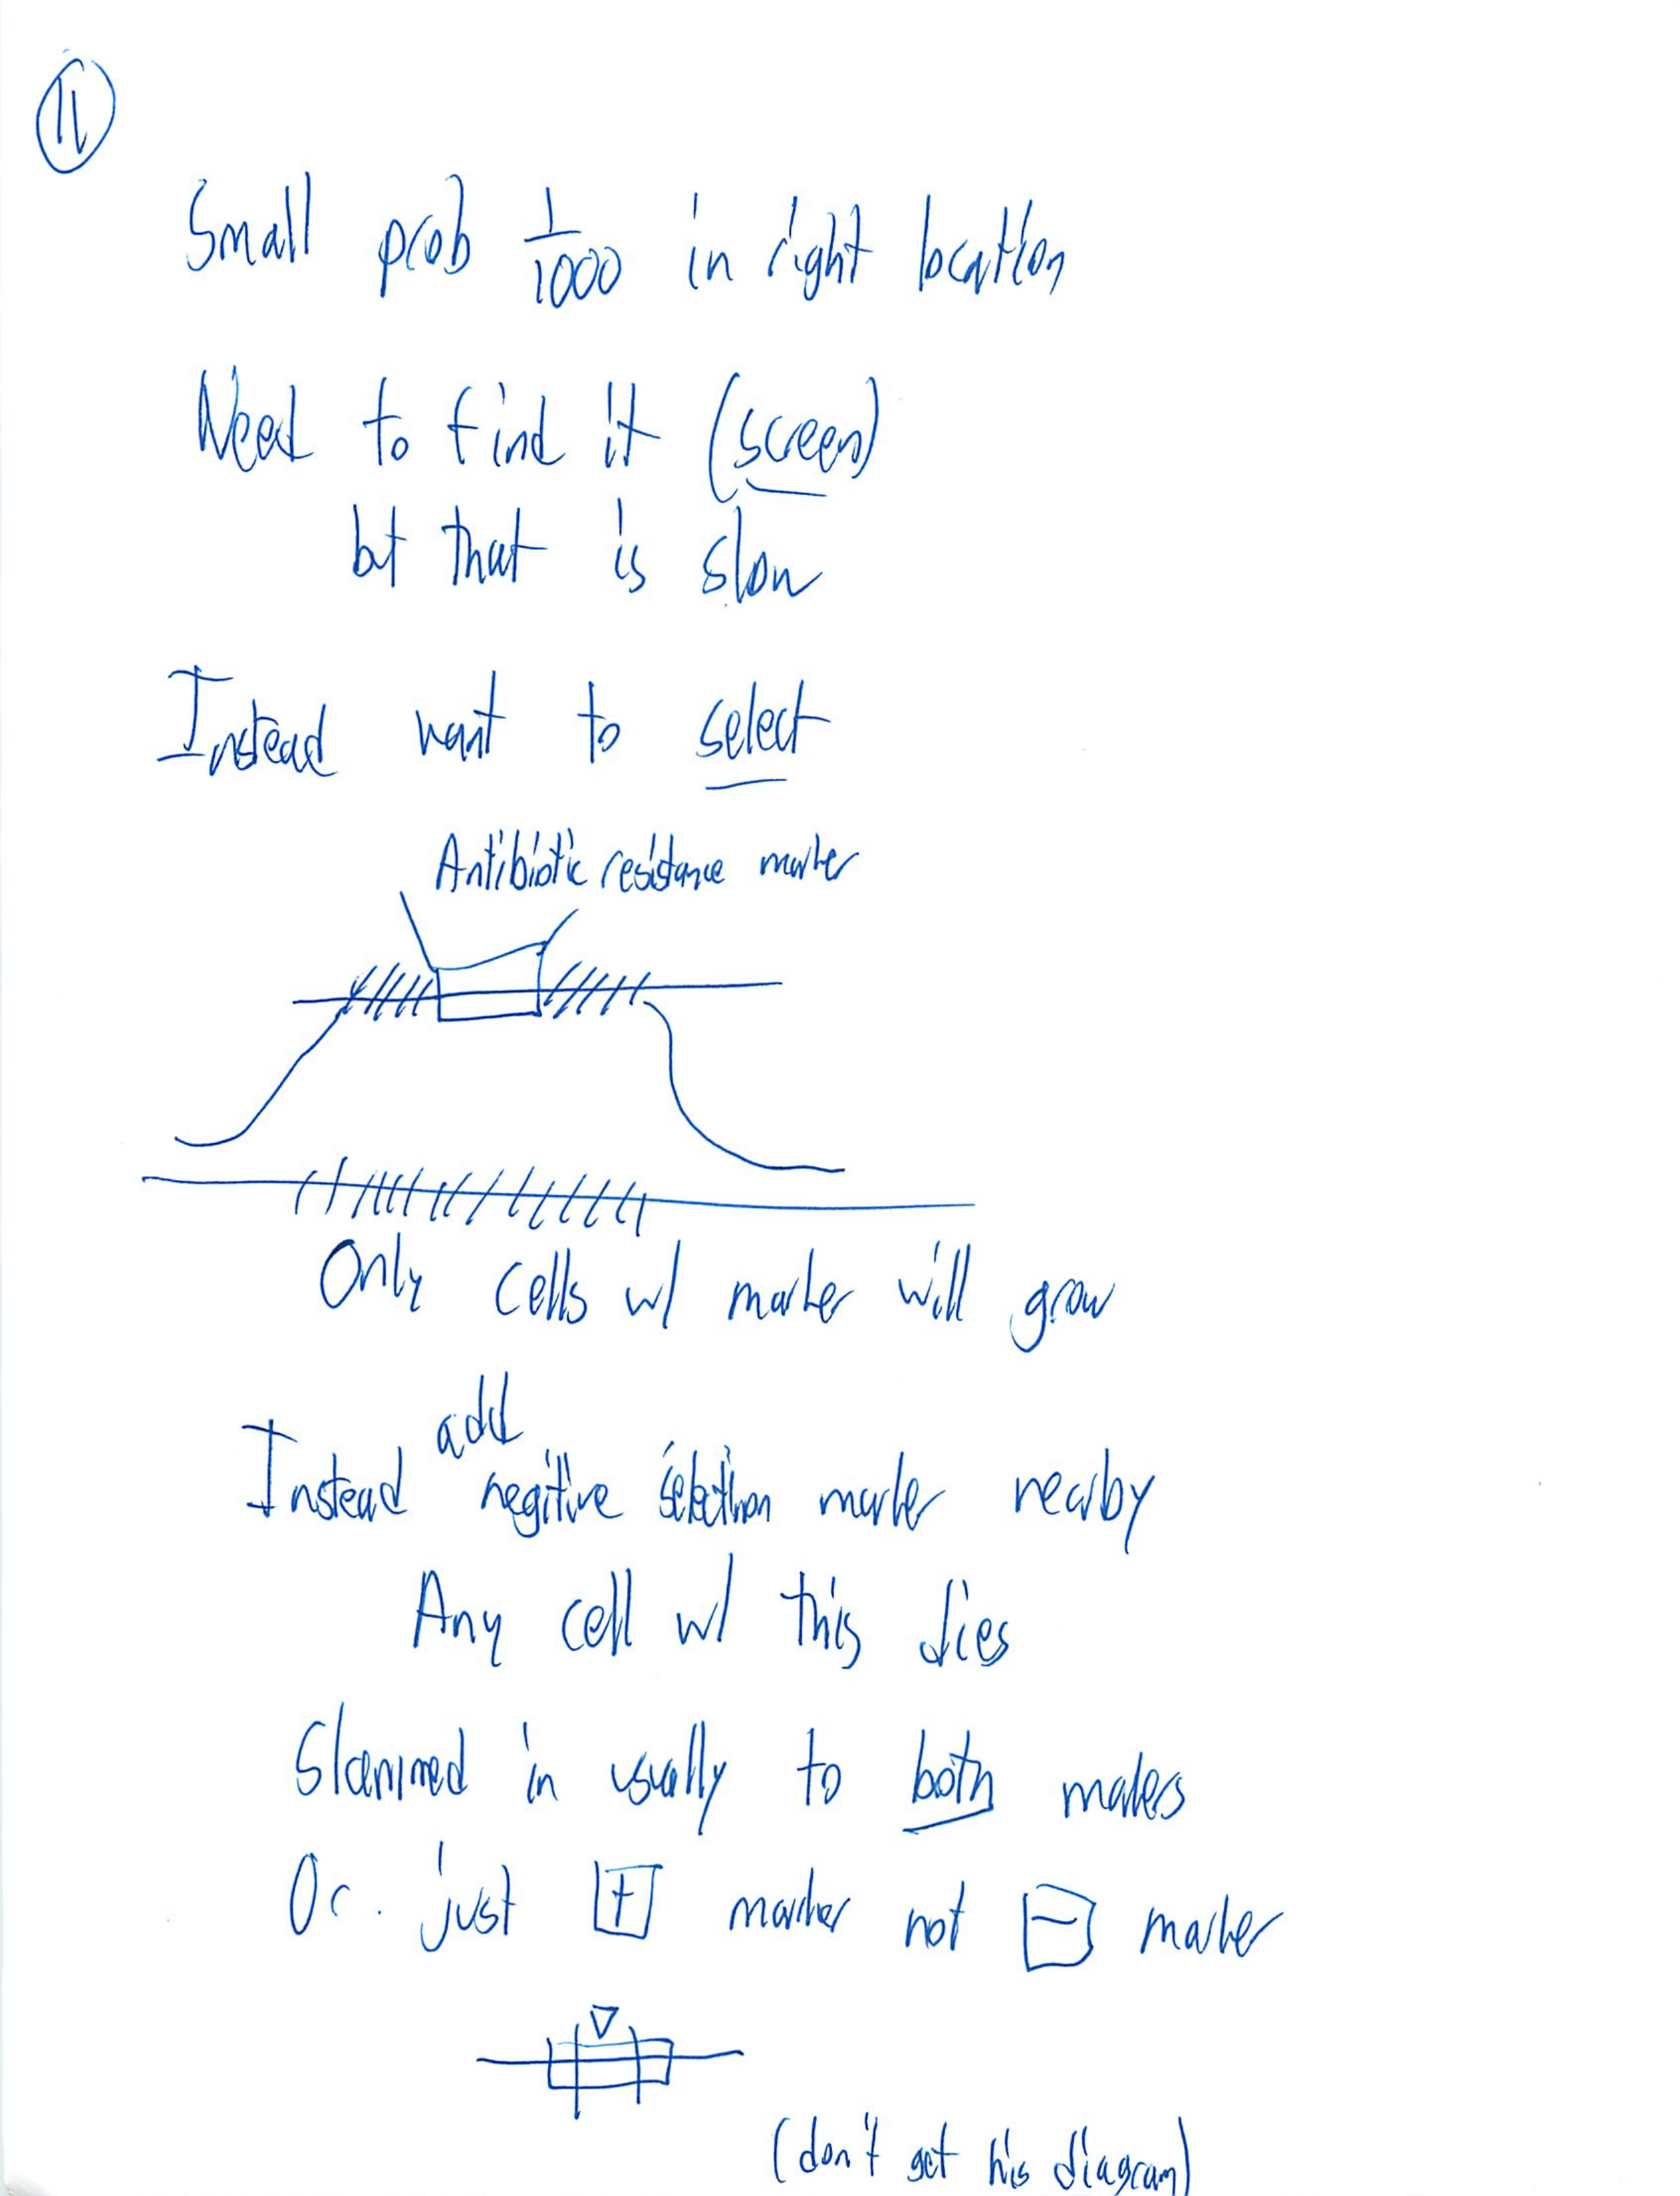 11
Small prob 1/1000 in right location
Need to find it (screen)
but that is slow
Instead want to select
Antibiotic resistance marker
Only cells w/ marker will grow
add
Instead negitive selection marker nearby
Any cell w/ this dies
Slammed in usually to both makers
Or. just + marker not - marker
(don't get his diagram)